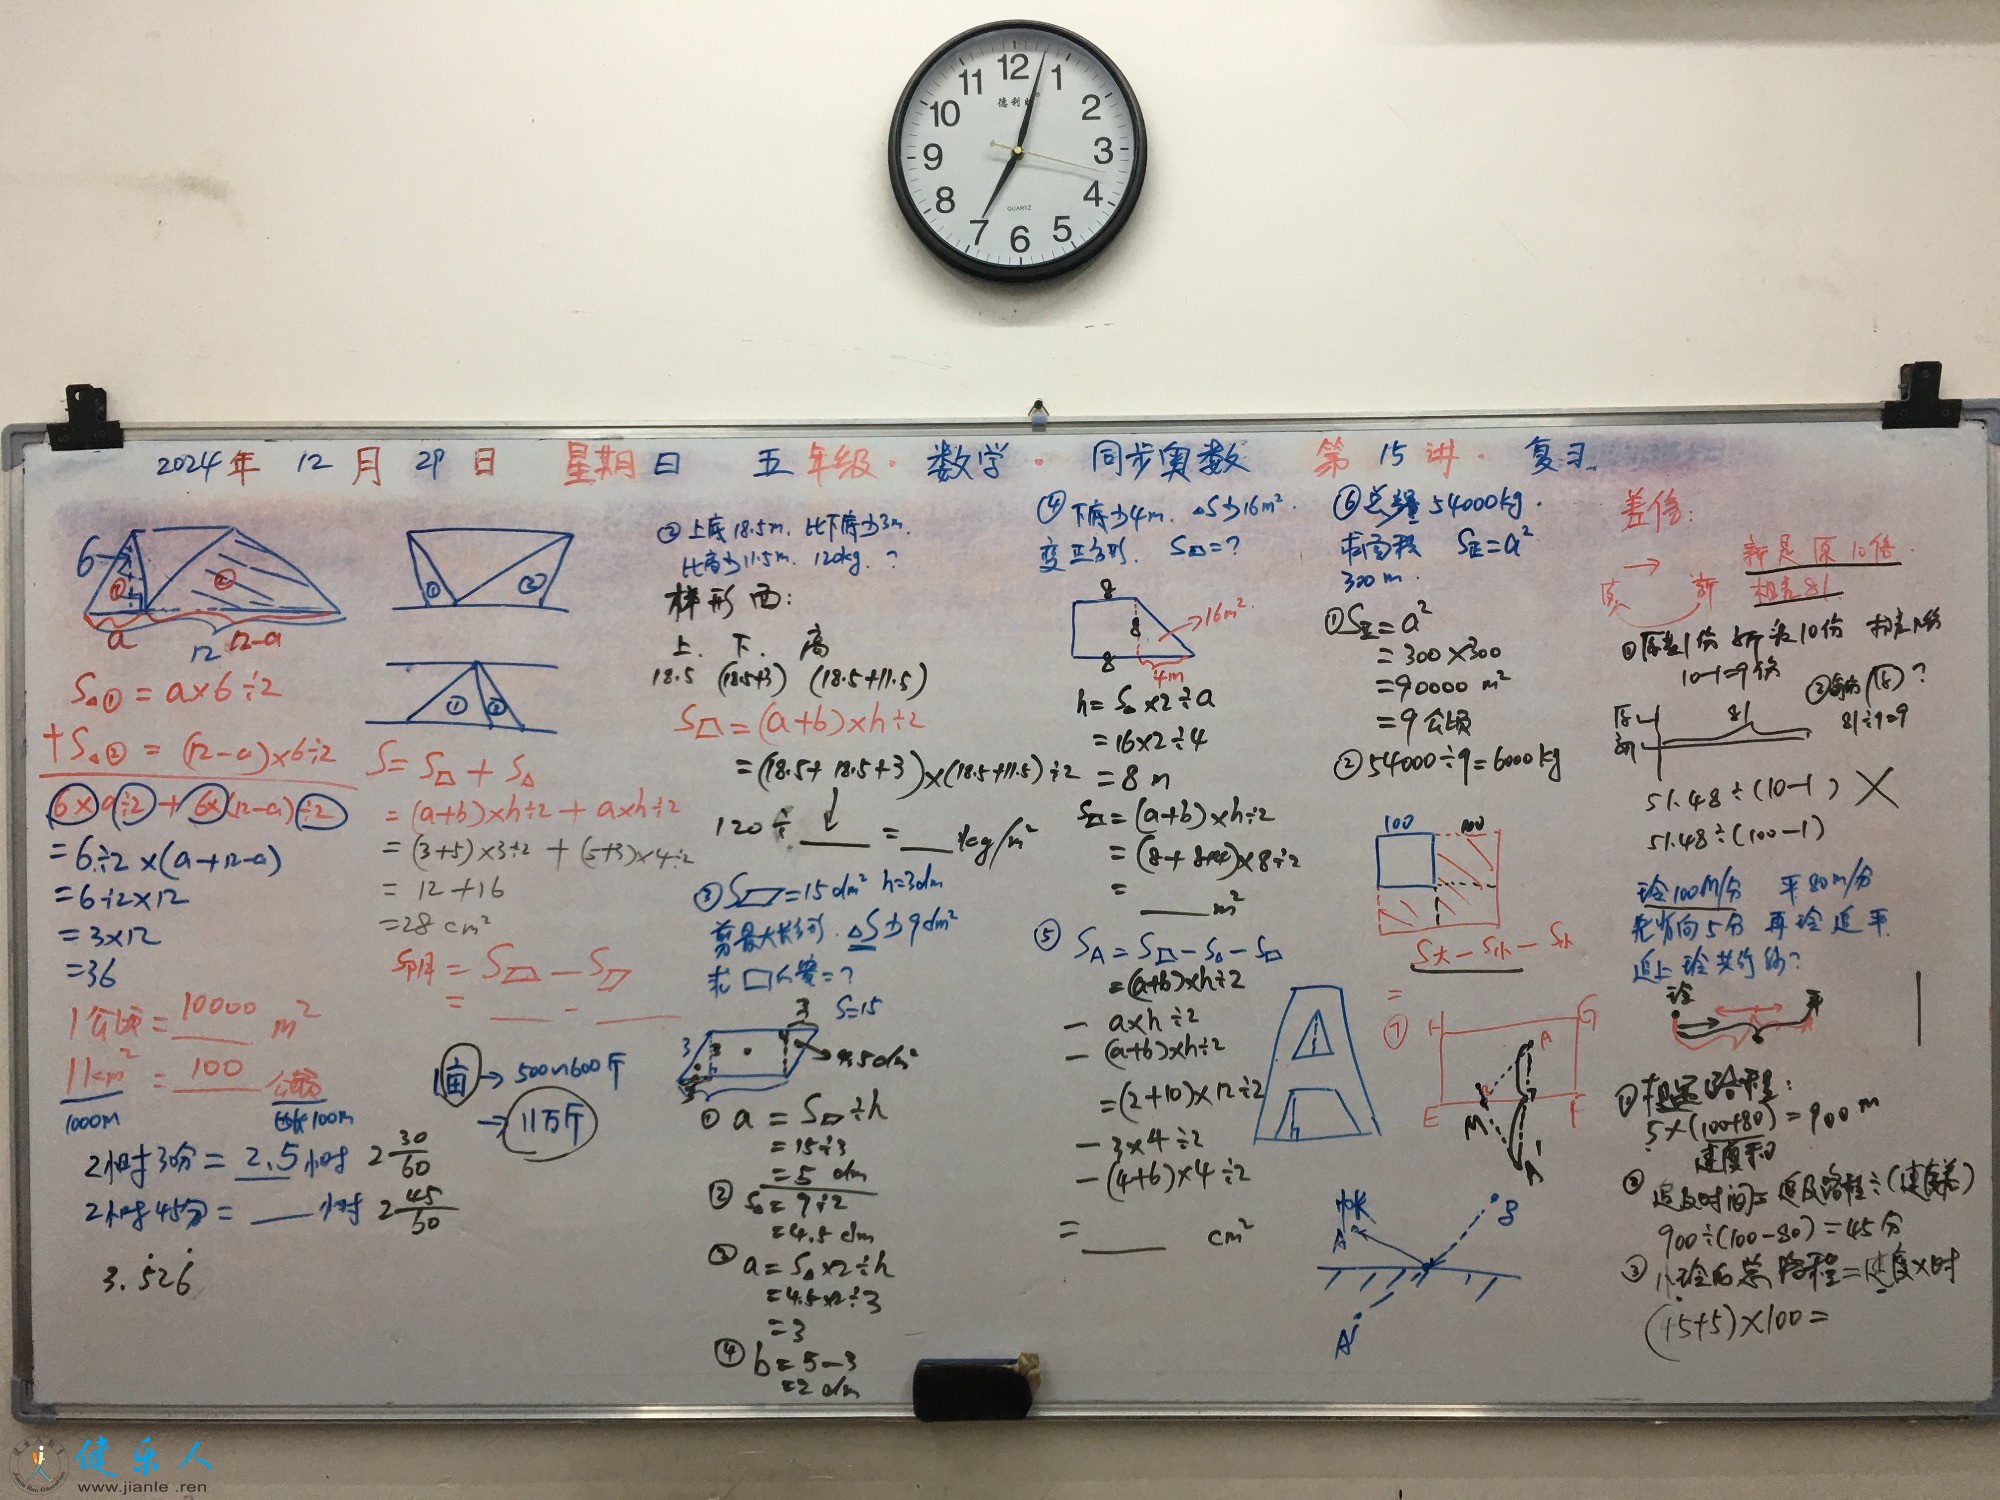 12
1
2
3
4
5
6
7
8
9
10
11
德利时
QUARTZ
2024年 12月 29日 星期日 五年级·数学· 同步奥数 第15讲· 复习
6
① ②
a 12-a
12
S△① = a×6÷2
+S△② = (12-a)×6÷2
6×a÷2 + 6×(12-a)÷2
=6÷2×(a+12-a)
=6÷2×12
=3×12
=36
1公顷= 10000 m²
1km² = 100 公顷
1000M 边长100M
2小时3分= 2.5小时 2 30/60
2小时45分= ___小时 2 45/50
3.526
① ②
① ②
S= S + S△
= (a+b)×h÷2 + a×h÷2
= (3+5)×3÷2 + (5+3)×4÷2
= 12+16
=28 cm²
S阴= S - S
= ___ - ___
1亩 → 500~600斤
→ 11万斤
② 上底18.5m. 比下底少3m.
比高少11.5m. 120kg. ?
梯形面:
上. 下. 高
18.5 (18.5+3) (18.5+11.5)
S = (a+b)×h÷2
= (18.5+18.5+3)×(18.5+11.5)÷2
120÷ ___ = ___ kg/m²
③ S =15dm² h=3dm
剪最大长方形. △S少9dm²
求 长宽=?
3 S=15
3
4.5dm²
① a = S ÷h
= 15÷3
= 5 dm
② S△= 9÷2
=4.5 dm
③ a = S△×2÷h
=4.5×2÷3
=3
④ b= 5-3
=2 dm
④ 下底少4m. △S少16m².
变正方形. S =?
8
8 16m²
8 4m
h= S△×2÷a
=16×2÷4
= 8 m
S =(a+b)×h÷2
= (8+8+4)×8÷2
= ___ m²
⑤ SA = S - S△ - S
=(a+b)×h÷2
- a×h÷2
- (a+b)×h÷2
=(2+10)×12÷2
- 3×4÷2
- (4+6)×4÷2
= ___ cm²
⑥ 总量54000kg.
求面积 S正=a²
300m.
①S正= a²
= 300×300
=90000 m²
=9公顷
② 54000÷9=6000kg
100 100
S大 - S小 - S小
=
⑦ H G
A
E M F
A'
A B
A'
差倍:
原 → 新 新是原10倍.
相差81
①原是1份 新是10份 相差9份
10-1=9份
②每份(原)?
81÷9=9
原
新 81
51.48÷(10-1) ×
51.48÷(100-1)
玲100M/分 平80m/分
先背向5分 再玲追平.
追上玲共行 ?
玲 平
①相距路程:
5×(100+80)=900m
速度和
② 追及时间=追及路程÷(速度差)
900÷(100-80)=45分
③ 小玲的总路程=速度×时
(45+5)×100=
健乐人
www.jianle.ren